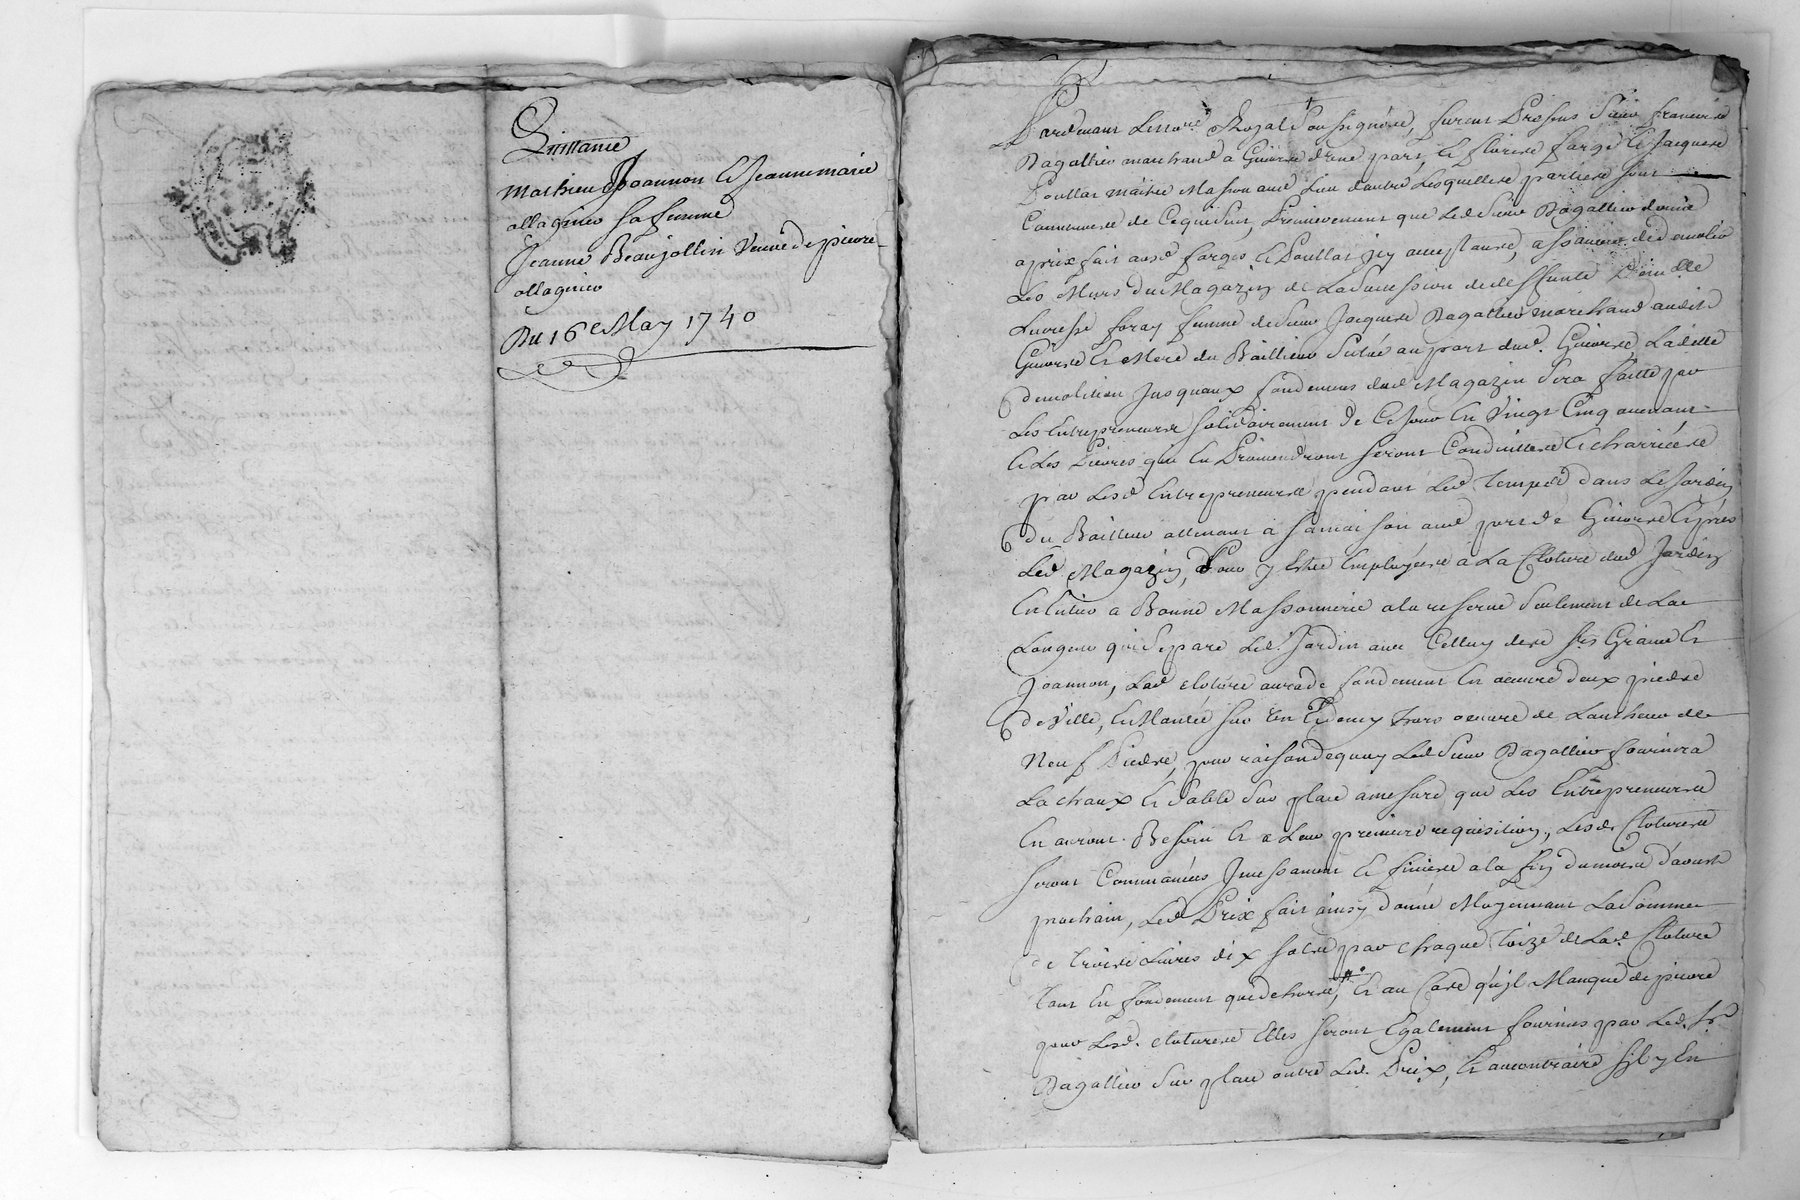 Quittance
Mathieu Joannon Et Jeanne marie
allagnieu sa femme
Jeanne Beaujollin Veuve de pierre
allagnieu
Du 16e May 1740
Pardevant Le Nore Royal Soussigné, furent Presens Sieur francois
Dagallier marchand a Givors d'une part, Et fleury farge Et Jacques
Poullat maitre Masson aud Lieu d'autre Lesquelles parties sont
Convenues de Ce qui Suit, Premierement que Led Sieur Dagallier donne
a prix fait ausd farges Et Poullat jcy acceptants, a scavoir de demolir
Les Murs du Magazin de La Succession de deffunte Demelle
foray femme de Sieur Jacques Dagallier marchand audit
Givors Et Mere du Baillieur Situé au port dud. Givors, Laditte
demolition Jusquaux fondemens dud Magazin Sera faitte par
Les Entrepreneurs Solidairement de Ce Jour En Vingt Cinq avenant
Et Les Pierres qui En Proviendront Seront Conduittes Et charriées
par Lesd Entrepreneurs pendant Led temps dans Le Jardin
du Bailleur attenant a Sa maison aud port de Givors Et pres
Led Magazin, Pour y Estre Employées a La Cloture dud Jardin
En Entier a Bonne Massonnerie a la reserve Seulement de La
Longeur qui Separe Led. Jardin avec Celluy des Srs Et
Joannon, Lad cloture aura de fondement En oeuvre deux pieds
de Ville, En Montée Sur Un Et demy hors oeuvre de La hauteur de
Neuf Pieds, pour raison de quoy Led Sieur Dagallier fournira
La chaux Et Sable Sur place a mesure que Les Entrepreneurs
En auront Besoin Et a Leur premiere requisition, Lesd. Clotures
Seront Commancées Jncessamment Et finies a la fin du mois d'aoust
prochain, Led Prix fait ainsy donné Moyennant La Somme
de trois Livres dix Sols par chaque toize de Lad Cloture
tant En fondement que dehors, Et au Cas qu'jl Manque de pierre
pour Lesd. clotures Elles Seront Egalement fournies par Led. Sr
Dagallier Sur place outre Led. Prix, Et au contraire S'jl y En